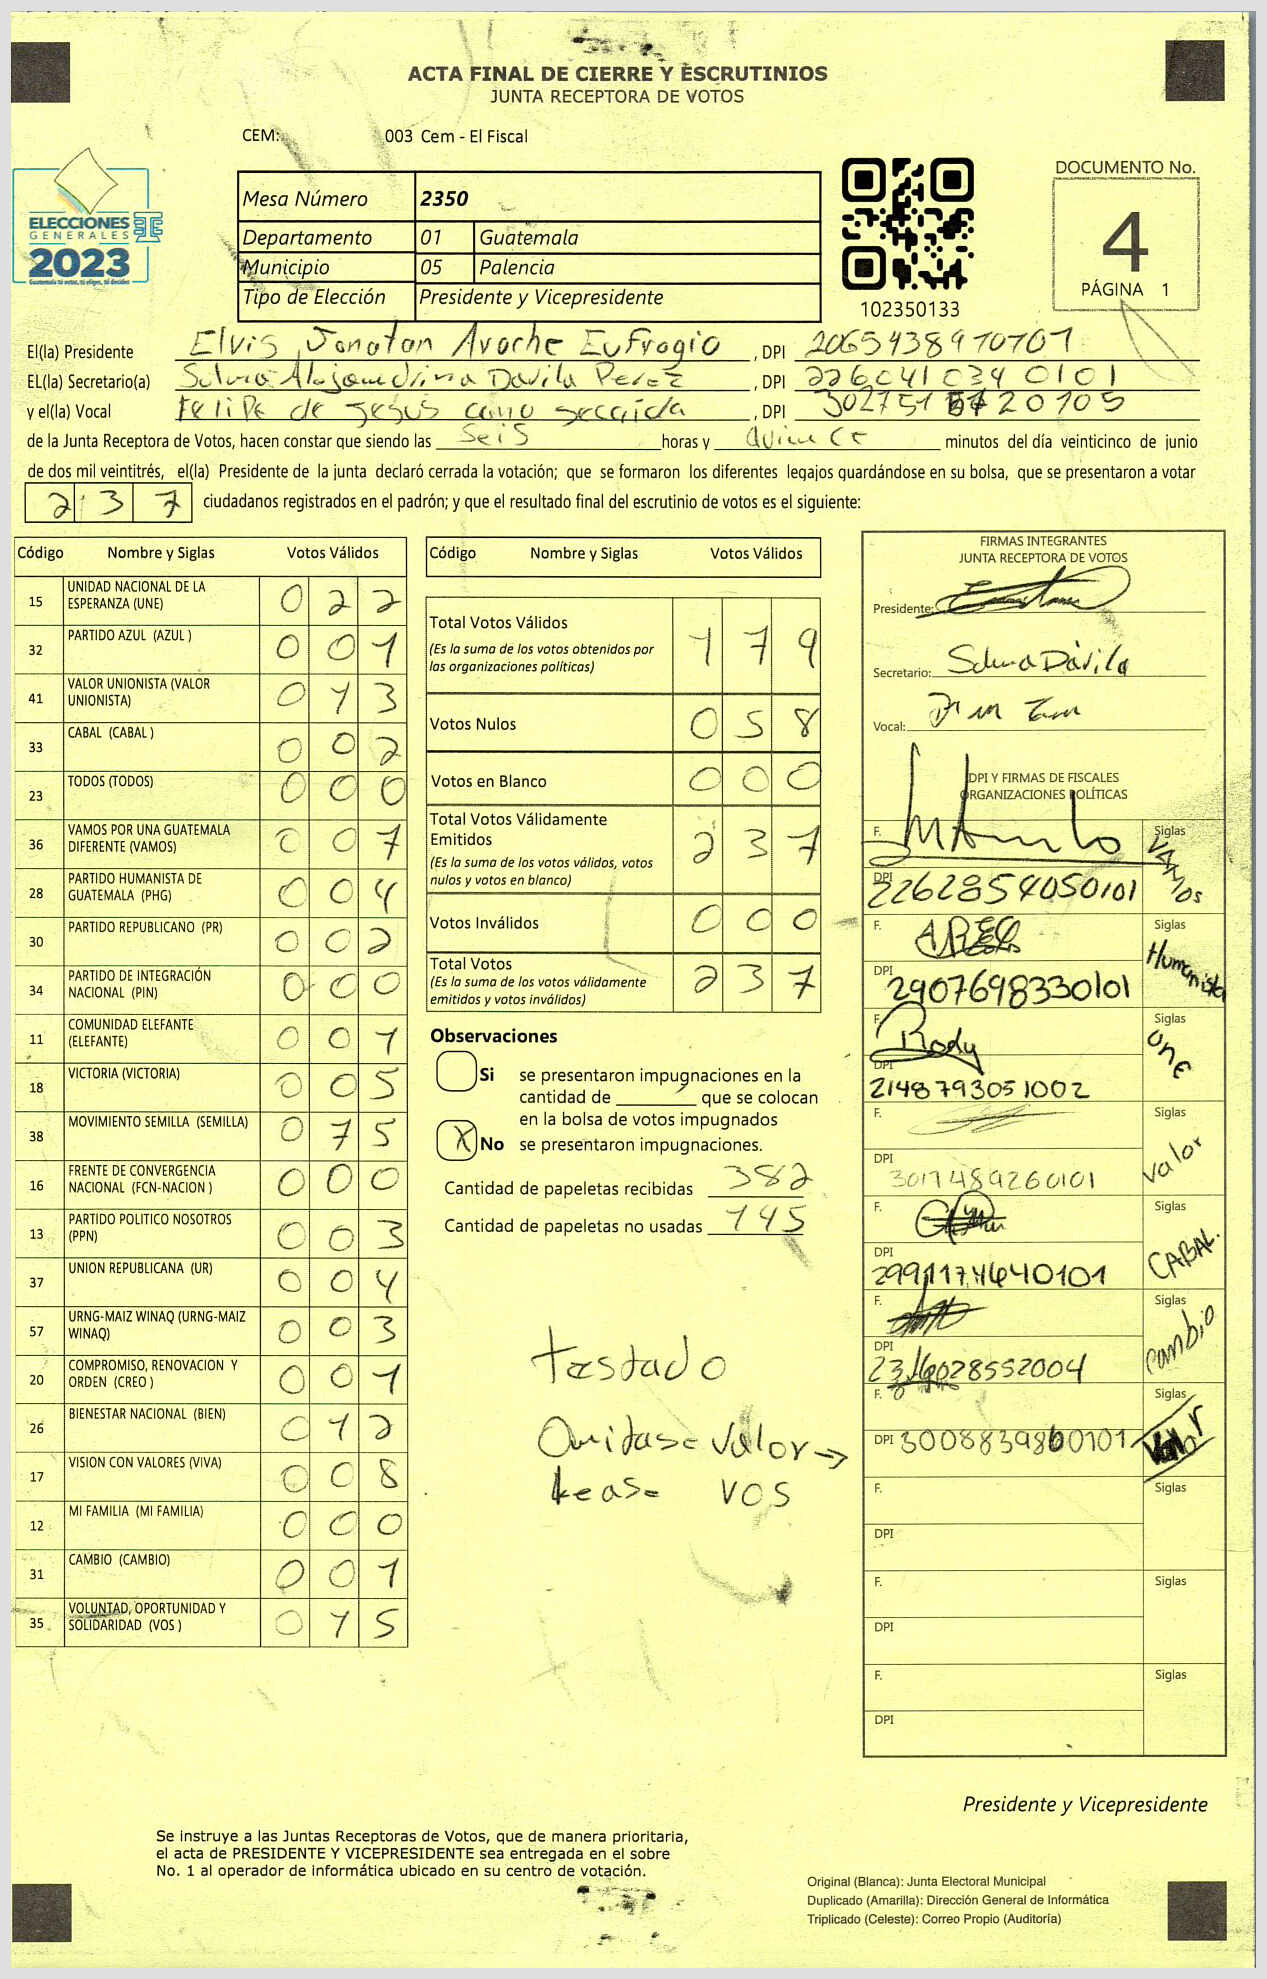 ACTA FINAL DE CIERRE Y ESCRUTINIOS
JUNTA RECEPTORA DE VOTOS
CEM: 003 Cem - El Fiscal
ELECCIONES
GENERALES
2023
Guatemala tú votas, tú eliges, tú decides
Mesa Número 2350
Departamento 01 Guatemala
Municipio 05 Palencia
Tipo de Elección Presidente y Vicepresidente
102350133
DOCUMENTO No.
4
PÁGINA 1
El(la) Presidente Elvis Jonatan Avoche Eufragio , DPI
EL(la) Secretario(a) Davila Perez , DPI 226041034 0101
y el(la) Vocal Felipe de Jesus cano , DPI
de la Junta Receptora de Votos, hacen constar que siendo las Seis horas y Quince minutos del día veinticinco de junio
de dos mil veintitrés, el(la) Presidente de la junta declaró cerrada la votación; que se formaron los diferentes legajos guardándose en su bolsa, que se presentaron a votar
237 ciudadanos registrados en el padrón; y que el resultado final del escrutinio de votos es el siguiente:
Código Nombre y Siglas Votos Válidos
15 UNIDAD NACIONAL DE LA ESPERANZA (UNE) 0 2 2
32 PARTIDO AZUL (AZUL ) 0 0 1
41 VALOR UNIONISTA (VALOR UNIONISTA) 0 1 3
33 CABAL (CABAL ) 0 0 2
23 TODOS (TODOS) 0 0 0
36 VAMOS POR UNA GUATEMALA DIFERENTE (VAMOS) 0 0 7
28 PARTIDO HUMANISTA DE GUATEMALA (PHG) 0 0 4
30 PARTIDO REPUBLICANO (PR) 0 0 2
34 PARTIDO DE INTEGRACIÓN NACIONAL (PIN) 0 0 0
11 COMUNIDAD ELEFANTE (ELEFANTE) 0 0 1
18 VICTORIA (VICTORIA) 0 0 5
38 MOVIMIENTO SEMILLA (SEMILLA) 0 7 5
16 FRENTE DE CONVERGENCIA NACIONAL (FCN-NACION ) 0 0 0
13 PARTIDO POLITICO NOSOTROS (PPN) 0 0 3
37 UNION REPUBLICANA (UR) 0 0 4
57 URNG-MAIZ WINAQ (URNG-MAIZ WINAQ) 0 0 3
20 COMPROMISO, RENOVACION Y ORDEN (CREO ) 0 0 1
26 BIENESTAR NACIONAL (BIEN) 0 1 2
17 VISION CON VALORES (VIVA) 0 0 8
12 MI FAMILIA (MI FAMILIA) 0 0 0
31 CAMBIO (CAMBIO) 0 0 1
35 VOLUNTAD, OPORTUNIDAD Y SOLIDARIDAD (VOS ) 0 1 5
Código Nombre y Siglas Votos Válidos
Total Votos Válidos 1 7 9
(Es la suma de los votos obtenidos por
las organizaciones políticas)
Votos Nulos 0 5 8
Votos en Blanco 0 0 0
Total Votos Válidamente
Emitidos 2 3 7
(Es la suma de los votos válidos, votos
nulos y votos en blanco)
Votos Inválidos 0 0 0
Total Votos 2 3 7
(Es la suma de los votos válidamente
emitidos y votos inválidos)
Observaciones
Si se presentaron impugnaciones en la
cantidad de ________ que se colocan
en la bolsa de votos impugnados
X No se presentaron impugnaciones.
Cantidad de papeletas recibidas 382
Cantidad de papeletas no usadas 145
Testado
Omitase Valor →
Lease VOS
FIRMAS INTEGRANTES
JUNTA RECEPTORA DE VOTOS
Presidente:
Secretario: Dávila
Vocal:
DPI Y FIRMAS DE FISCALES
ORGANIZACIONES POLÍTICAS
F. Siglas VAMOS
DPI 2262854050101
F. Siglas Humanista
DPI 2907698330101
F. Body Siglas UNE
DPI 2148793051002
F. Siglas Valor
DPI 3017489260101
F. Siglas CABAL.
DPI
F. Siglas Cambio
DPI
F. Siglas Valor
DPI 3008839860101
F. Siglas
DPI
F. Siglas
DPI
F. Siglas
DPI
Presidente y Vicepresidente
Se instruye a las Juntas Receptoras de Votos, que de manera prioritaria,
el acta de PRESIDENTE Y VICEPRESIDENTE sea entregada en el sobre
No. 1 al operador de informática ubicado en su centro de votación.
Original (Blanca): Junta Electoral Municipal
Duplicado (Amarilla): Dirección General de Informática
Triplicado (Celeste): Correo Propio (Auditoría)